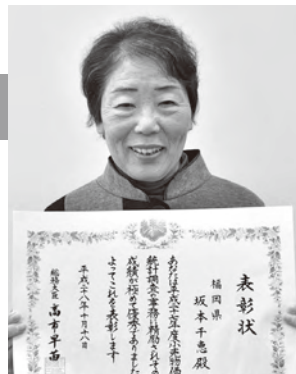 表彰状
福岡県
坂本千恵殿
あなたは平成二十七年度小売物価
統計調査の事務に精励されその
成績が極めて優秀でありました
よってこれを表彰します
平成二十八年十月十八日
総務大臣 高市早苗